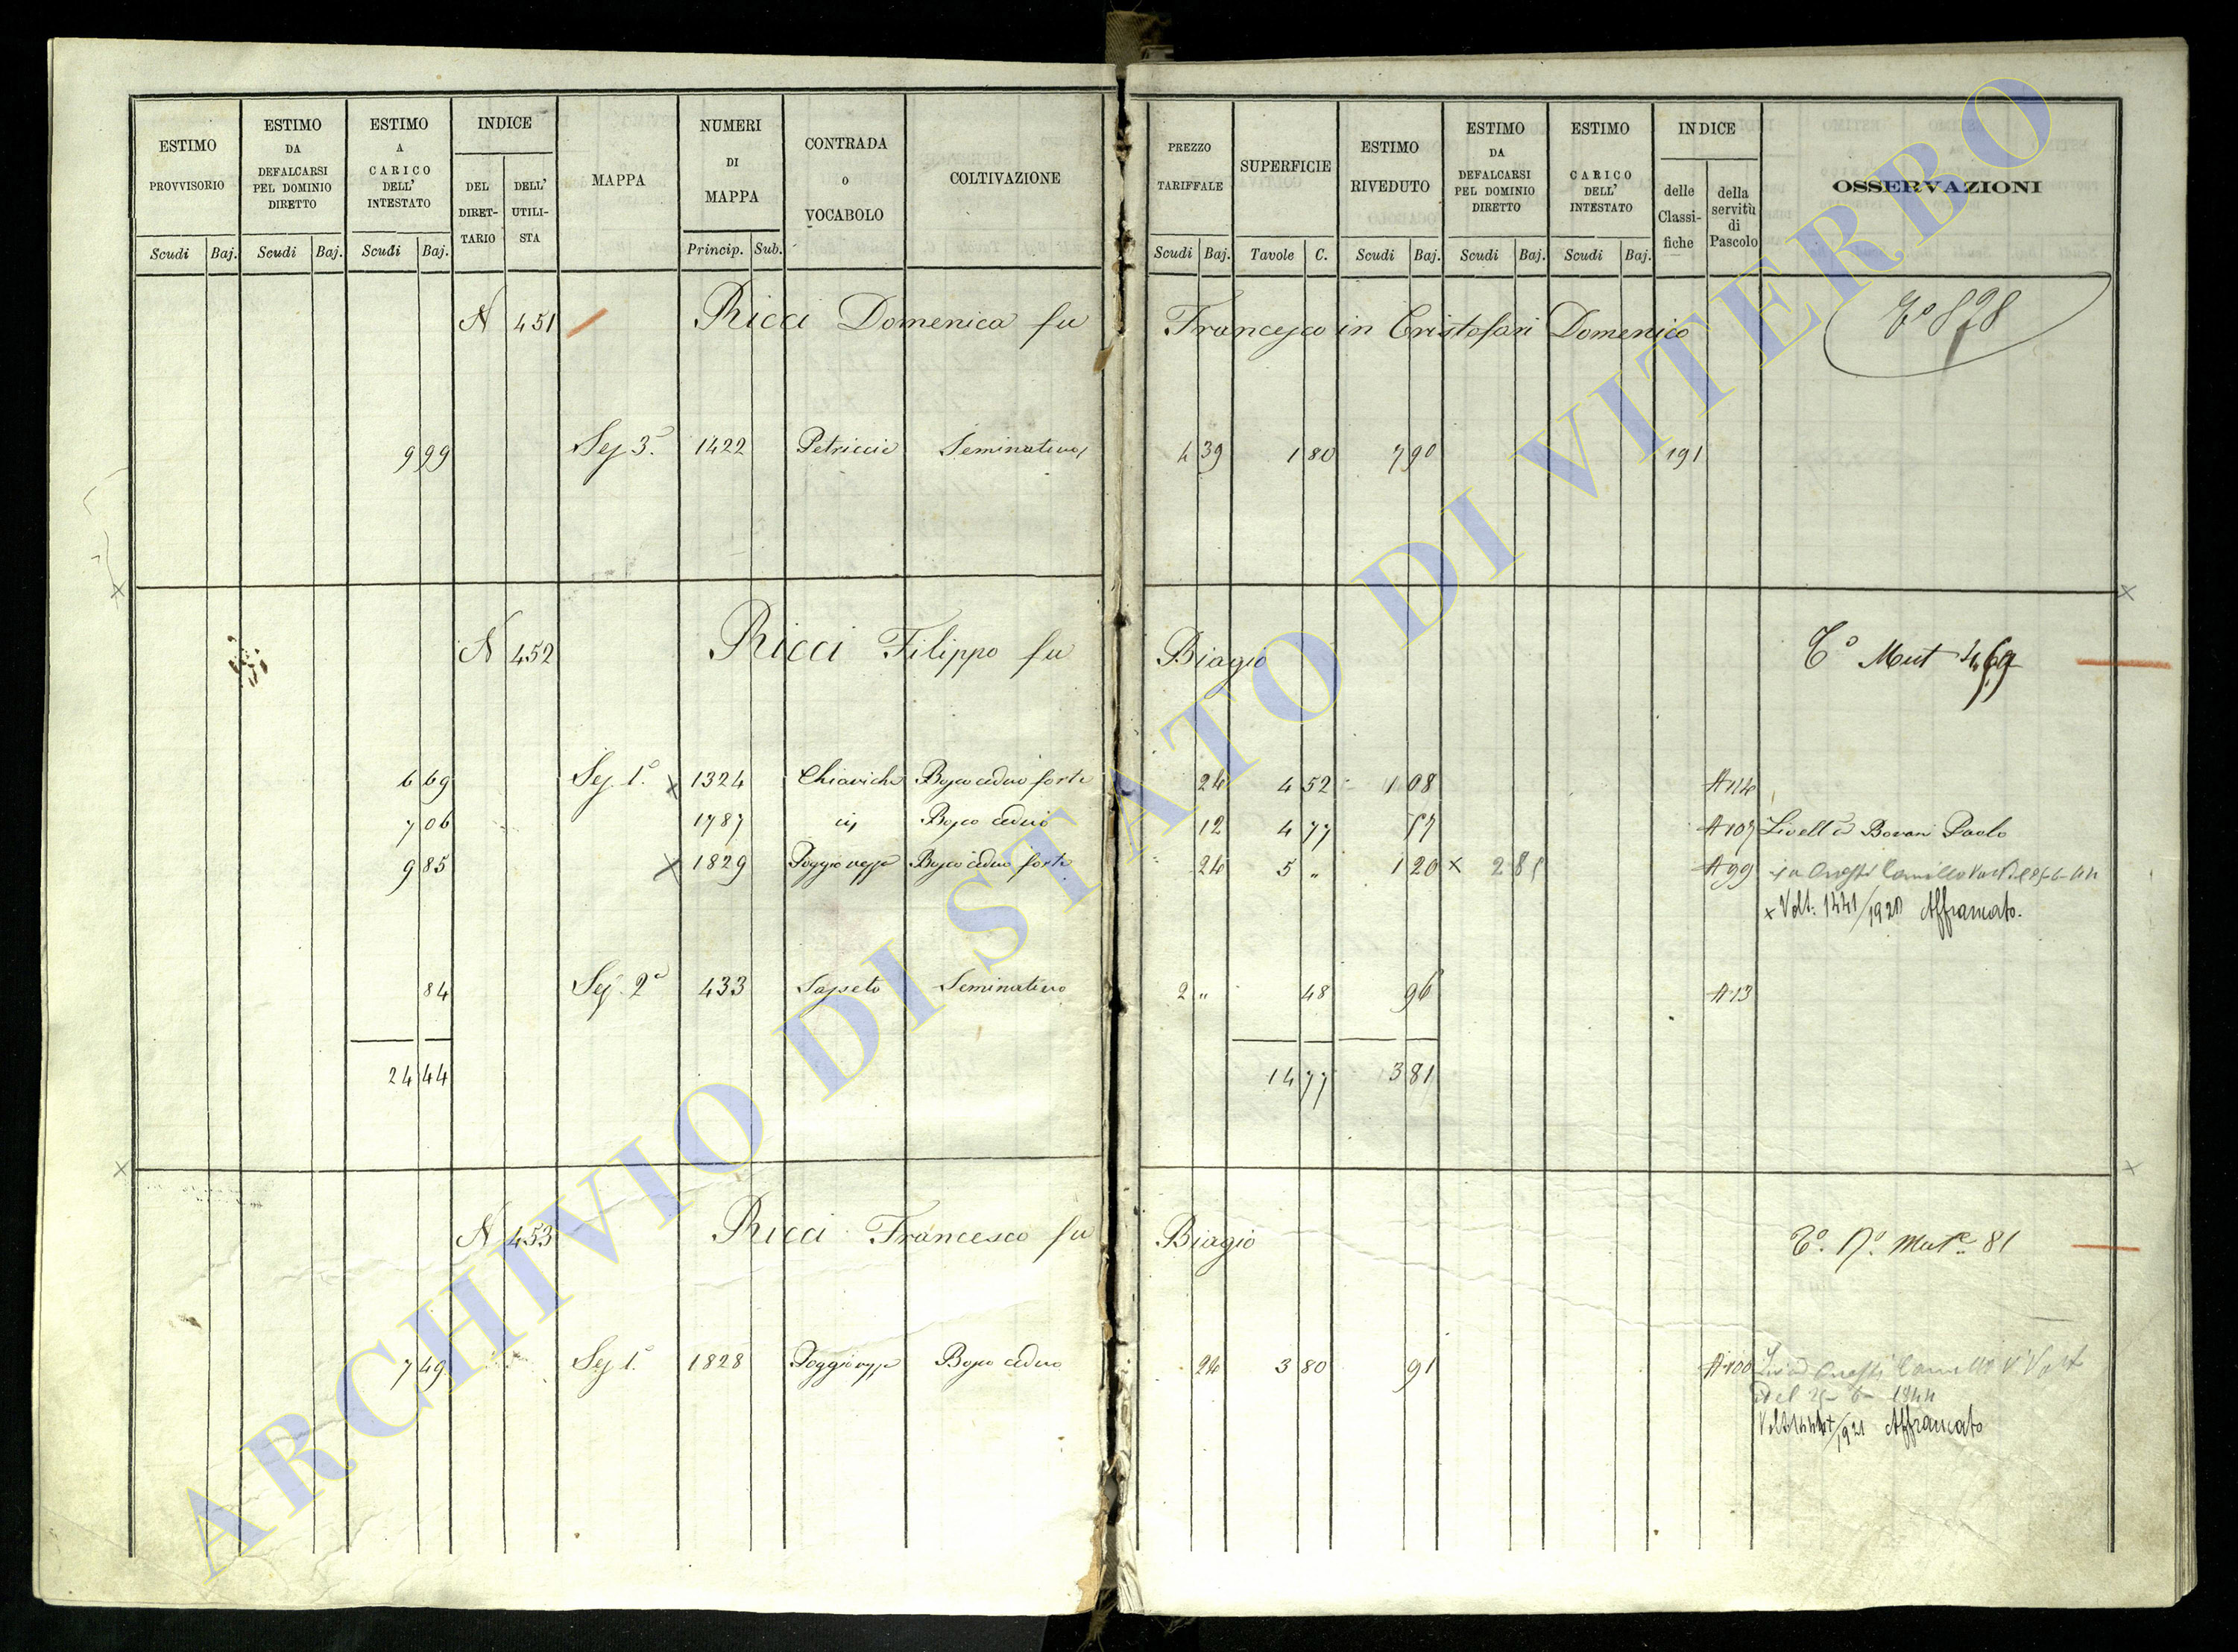 ESTIMO PROVVISORIO
Scudi Baj.
ESTIMO DA DEFALCARSI PEL DOMINIO DIRETTO
Scudi Baj.
ESTIMO A CARICO DELL' INTESTATO
Scudi Baj.
INDICE
DEL DIRET- TARIO
DELL' UTILI- STA
MAPPA
NUMERI DI MAPPA
Princip. Sub.
CONTRADA O VOCABOLO
COLTIVAZIONE
PREZZO TARIFFALE
Scudi Baj.
SUPERFICIE
Tavole C.
ESTIMO RIVEDUTO
Scudi Baj.
ESTIMO DA DEFALCARSI PEL DOMINIO DIRETTO
Scudi Baj.
ESTIMO A CARICO DELL' INTESTATO
Scudi Baj.
INDICE
delle Classi- fiche
della servitù di Pascolo
OSSERVAZIONI
N 451 Ricci Domenica fu Francesco in Cristofari Domenico
9 99 Sez. 3a 1422 Petriccie Seminativo 4 39 1 80 7 90 191
N 452 Ricci Filippo fu Biagio Mut 469
6 69 Sez. 1a x 1324 Chiaviche Bosco ceduo forte 24 4 52 1 08 A 114
7 06 1787 Bosco ceduo 12 4 77 57 A 107 Livell o Paolo
9 85 x 1829 Bosco ceduo forte 24 5 „ 1 20 x A 99
x Volt. Affrancato.
84 Sez. 2a 433 Sapseto Seminativo 2 „ 48 96 A 13
24 44 14 77 3 81
N 453 Ricci Francesco fu Biagio Mut 81
7 49 Sez. 1a 1828 Bosco ceduo 24 3 80 91 A 100
Affrancato
ARCHIVIO DI STATO DI VITERBO